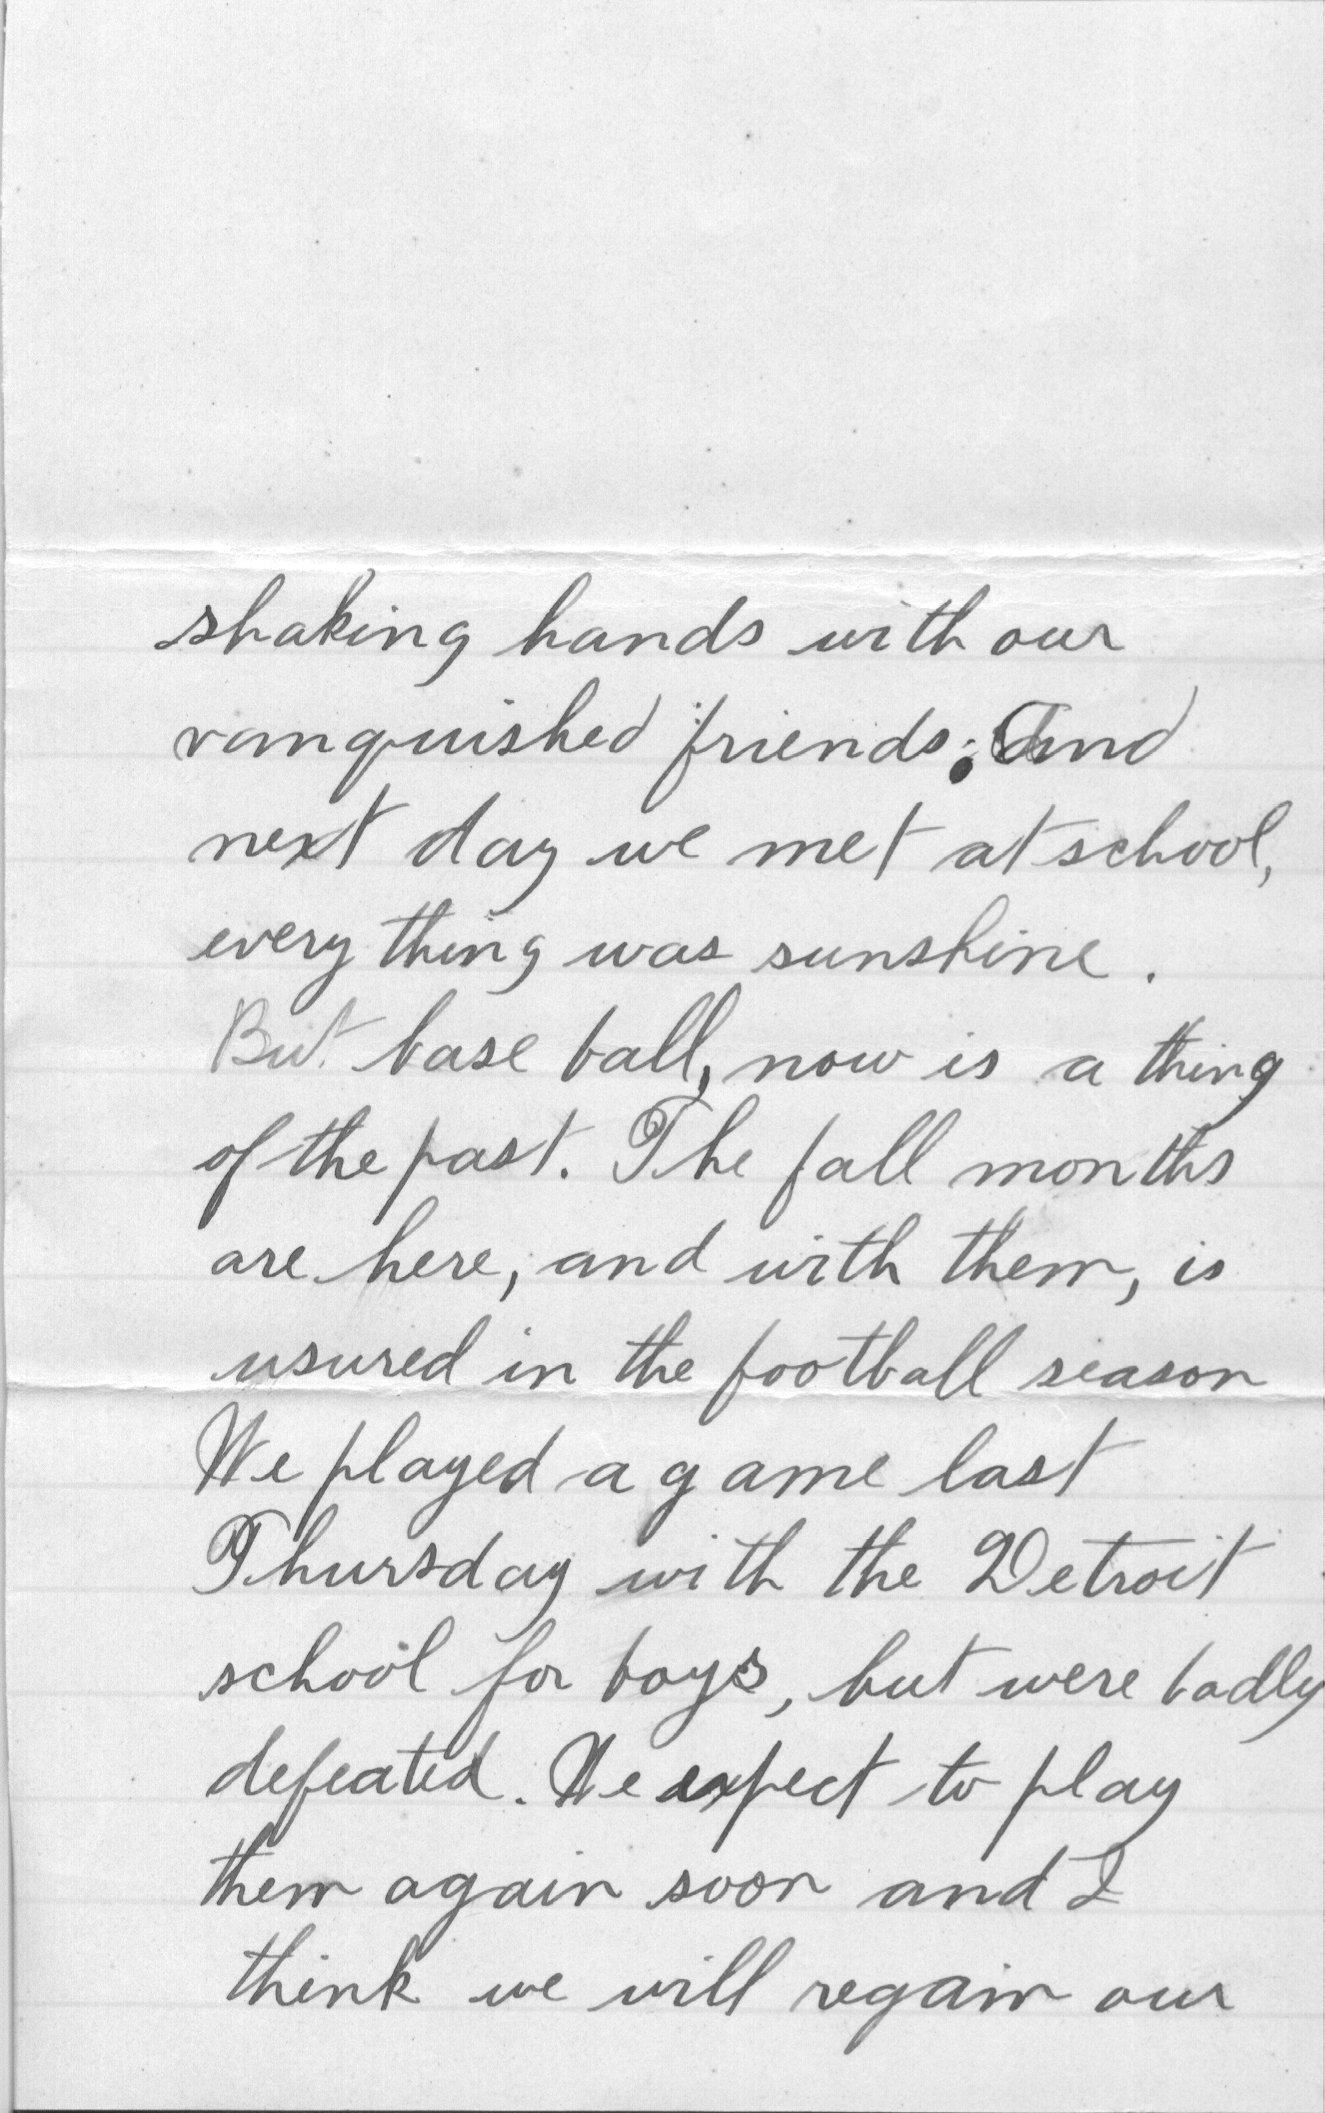 shaking hands with our
vanquished friends; And
next day we met at school,
every thing was sunshine.
But base ball, now is a thing
of the past. The fall months
are here, and with them, is
usured in the football season
We played a game last
Thursday with the Detroit
school for boys, but were badly
defeated. We expect to play
them again soon and I
think we will regain our